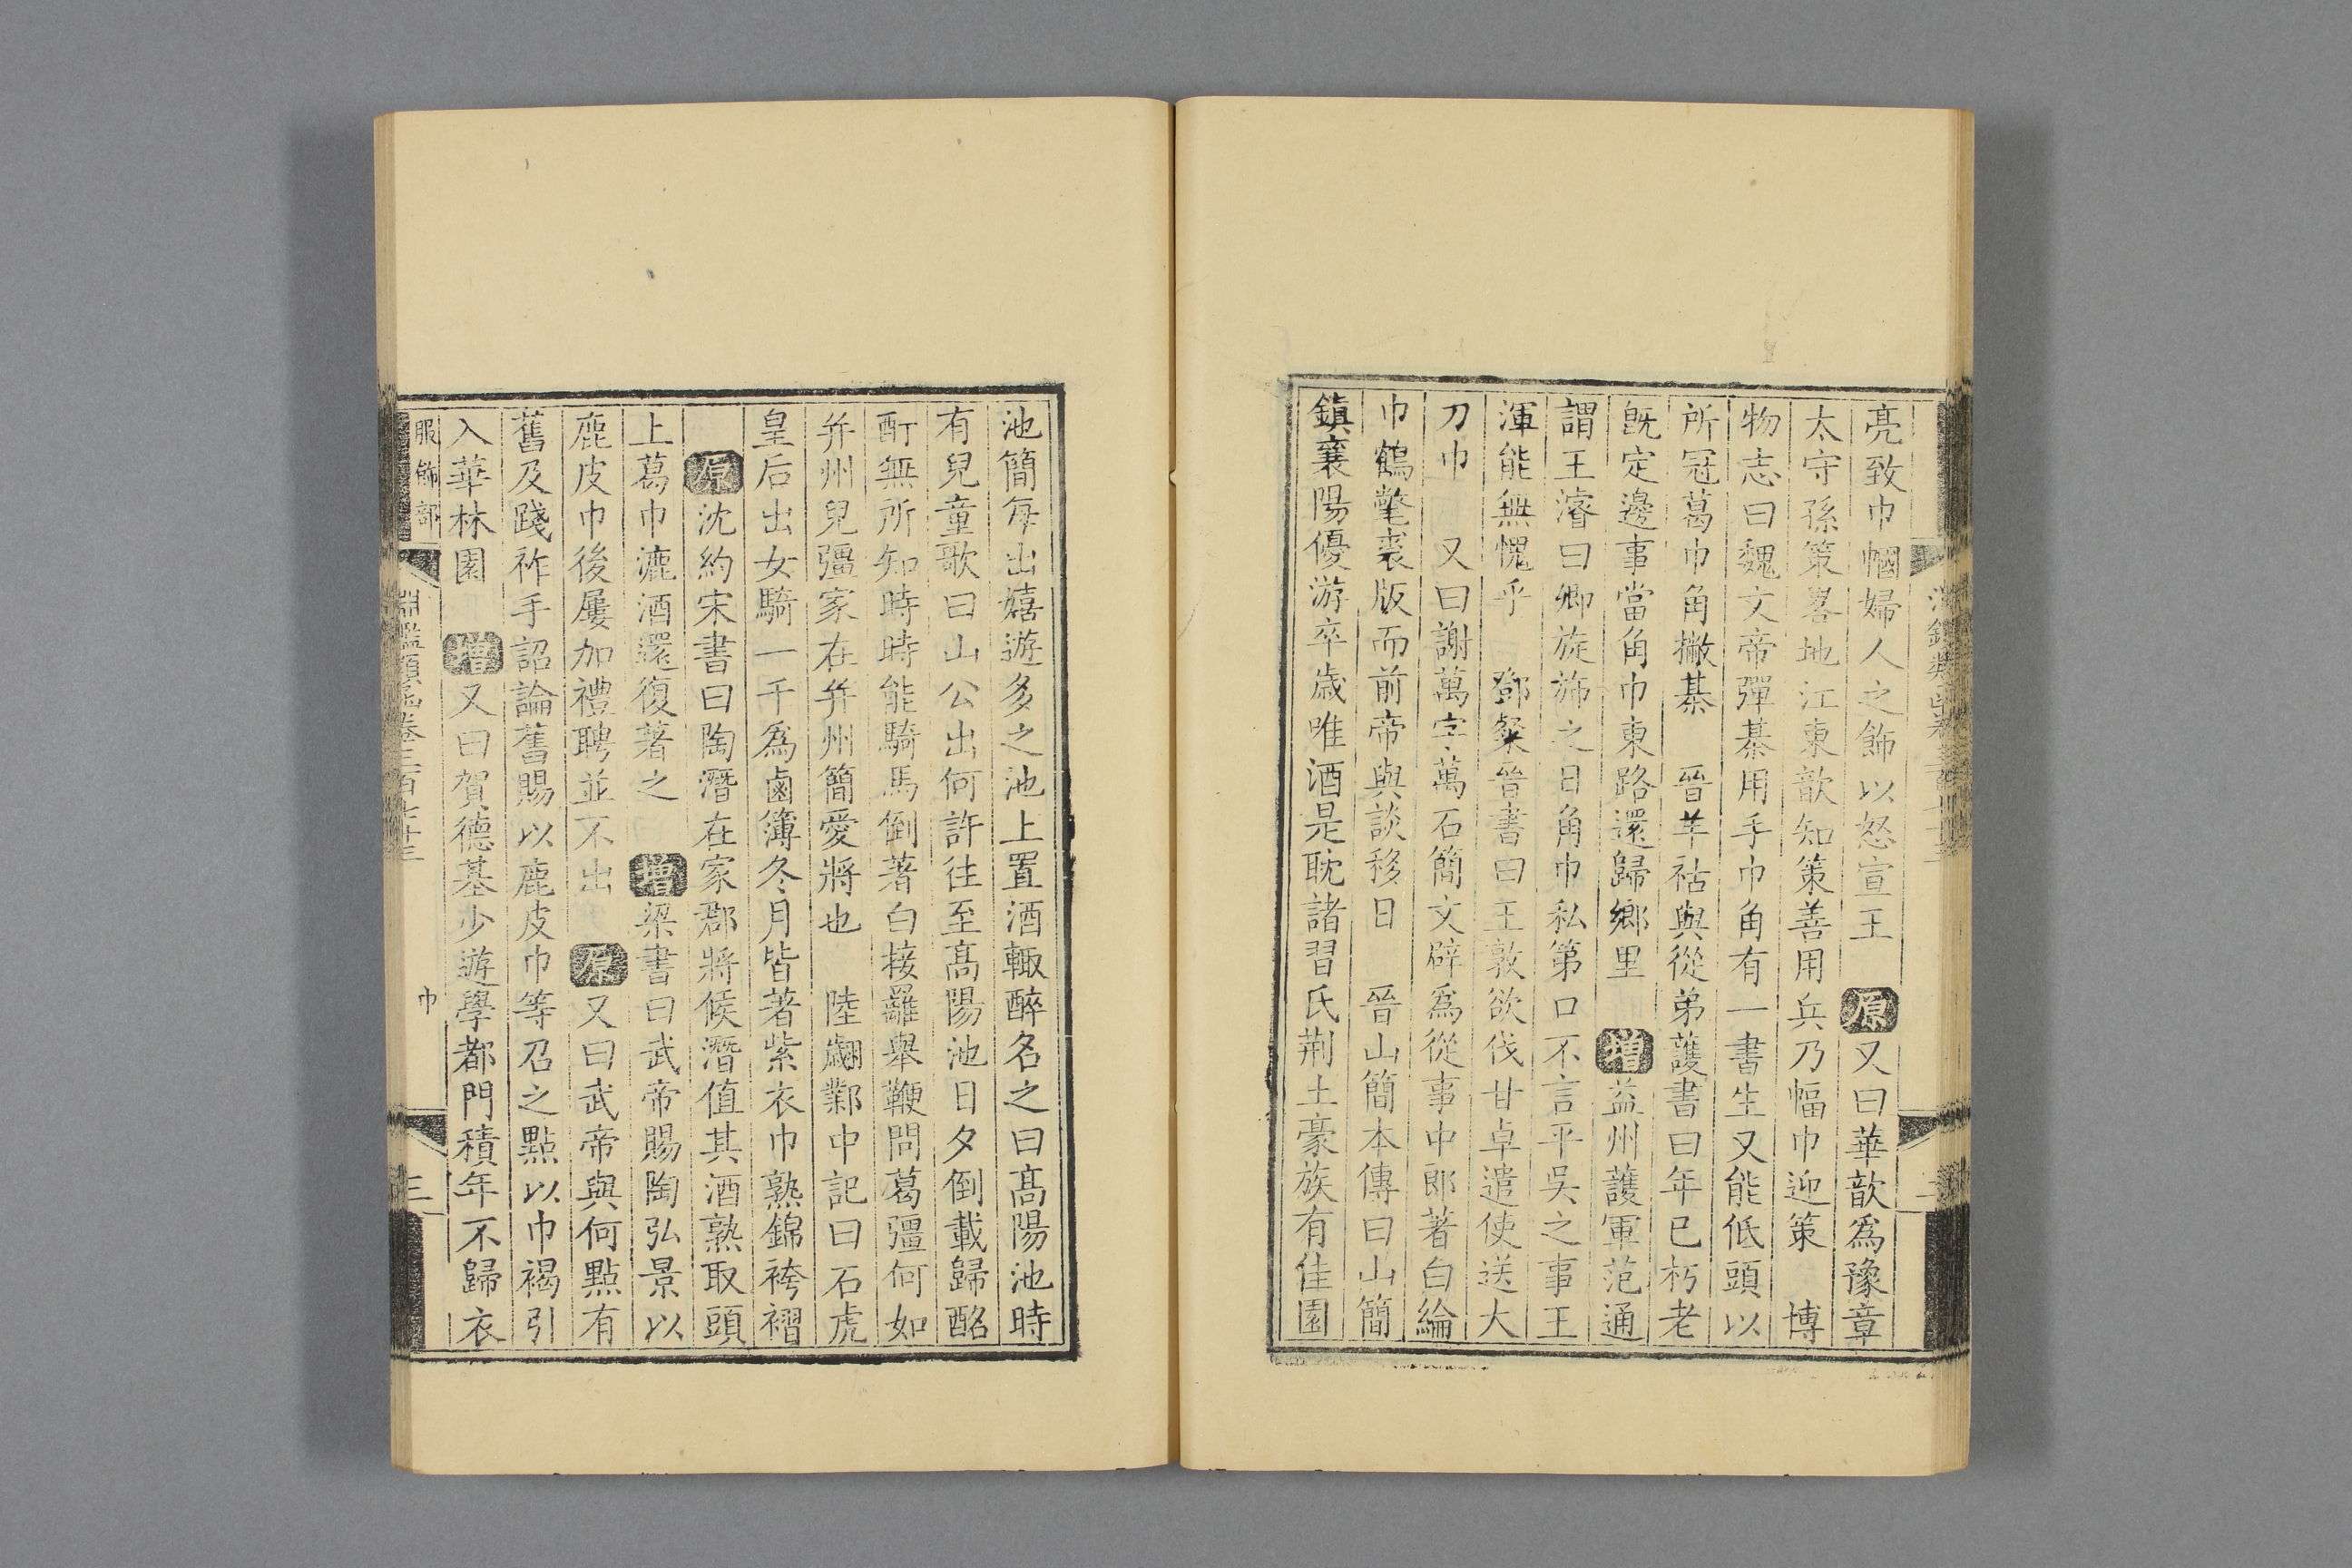 亮致巾幗婦人之飾以怒宣王　原又曰華歆爲豫章
太守孫策畧地江東歆知策善用兵乃幅巾迎策　博
物志曰魏文帝彈棊用手巾角有一書生又能低頭以
所冠葛巾角撇棊　晉羊祜與從弟護書曰年已朽老
旣定邊事當角巾東路還歸鄉里　增益州護軍范通
謂王濬曰卿旋斾之日角巾私第口不言平吳之事王
渾能無愧乎　鄧粲晉書曰王敦欲伐甘卓遣使送大
刀巾　又曰謝萬字萬石簡文辟爲從事中郎著白綸
巾鶴氅裘版而前帝與談移日　晉山簡本傳曰山簡
鎮襄陽優游卒歲唯酒是耽諸習氏荆土豪族有佳園
池簡每出嬉遊多之池上置酒輒醉名之曰高陽池時
有兒童歌曰山公出何許往至高陽池日夕倒載歸酩
酊無所知時時能騎馬倒著白接䍦舉鞭問葛彊何如
并州兒彊家在并州簡愛將也　陸翽鄴中記曰石虎
皇后出女騎一千爲鹵簿冬月皆著紫衣巾熟錦袴褶
原沈約宋書曰陶潛在家郡將候潛值其酒熟取頭
上葛巾漉酒還復著之　增梁書曰武帝賜陶弘景以
鹿皮巾後屢加禮聘並不出　原又曰武帝與何點有
舊及踐祚手詔論舊賜以鹿皮巾等召之點以巾褐引
入華林園　增又曰賀德基少遊學都門積年不歸衣
服飾部　淵鑑類函卷三百七十三　巾　三